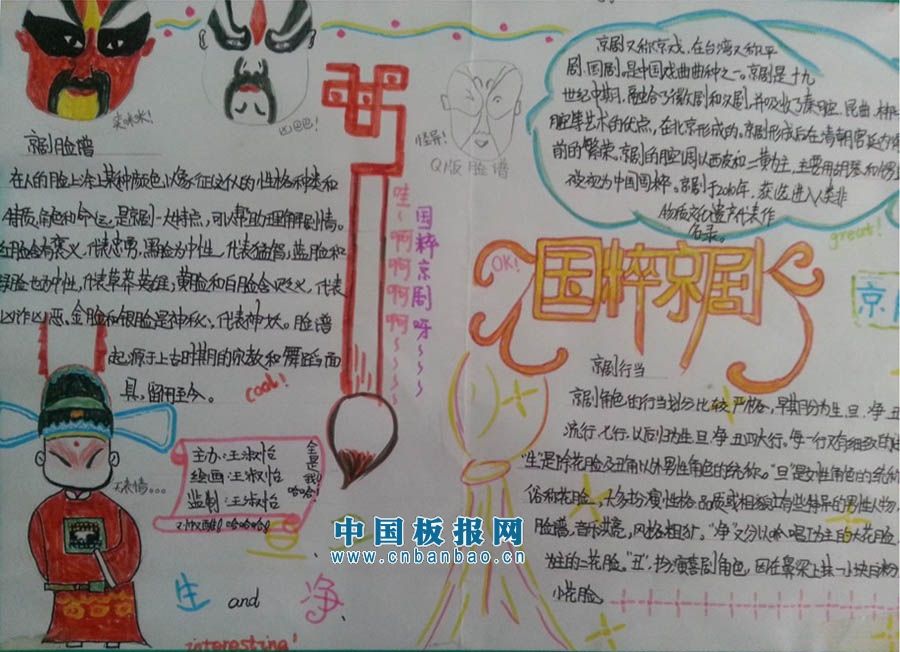 卖咪咪!
凶巴巴!
京剧脸谱
在人的脸上涂上某种颜色,以象征这个人的性格种类和
特质,角色和命运,是京剧一大特点,可以帮助理解剧情。
红脸含有褒义,代表忠勇,黑脸为中性,代表猛智,蓝脸和
绿脸也为中性,代表草莽英雄,黄脸和白脸含贬义,代表
凶诈凶恶,金脸和银脸是神秘,代表神妖。脸谱
起源于上古时期的宗教和舞蹈面
具,留用至今。
cool!
怪异!
Q版脸谱
国粹京剧呀~~~~
哇~啊啊啊啊~~~~
京剧又称京戏,在台湾又称平
剧、国剧。是中国戏曲曲种之一。京剧是十九
世纪中期,融合了徽剧和汉剧,并吸收了秦腔、昆曲、梆子
腔等艺术的优点,在北京形成的。京剧形成后在清朝宫廷内
前的繁荣。京剧的腔调以西皮和二黄为主,主要用胡琴和锣
被视为中国国粹。京剧于2010年,获选进入人类非
物质文化遗产代表作
名录。
great!
OK!
国粹京剧
京
京剧行当
京剧角色的行当划分比较严格,早期分为生、旦、净、丑
流行、七行,以后归为生、旦、净、丑四大行,每一行又有细致的
"生"是除花脸及丑角以外男性角色的统称。"旦"是女性角色的统称
俗称花脸,大多扮演性格、品质或相貌上有些特异的男性人物,
脸谱,音乐洪亮,风格粗犷。"净"又分以唱工为主的大花脸
为主的二花脸。"丑",扮演喜剧角色,因在鼻梁上抹一小块白粉
小花脸
主办:王淑怡
绘画:王淑怡
监制:王淑怡
全是我!哈哈!
无表情...
中国板报网
www.cnbanbao.cn
生 and 净
interesting!